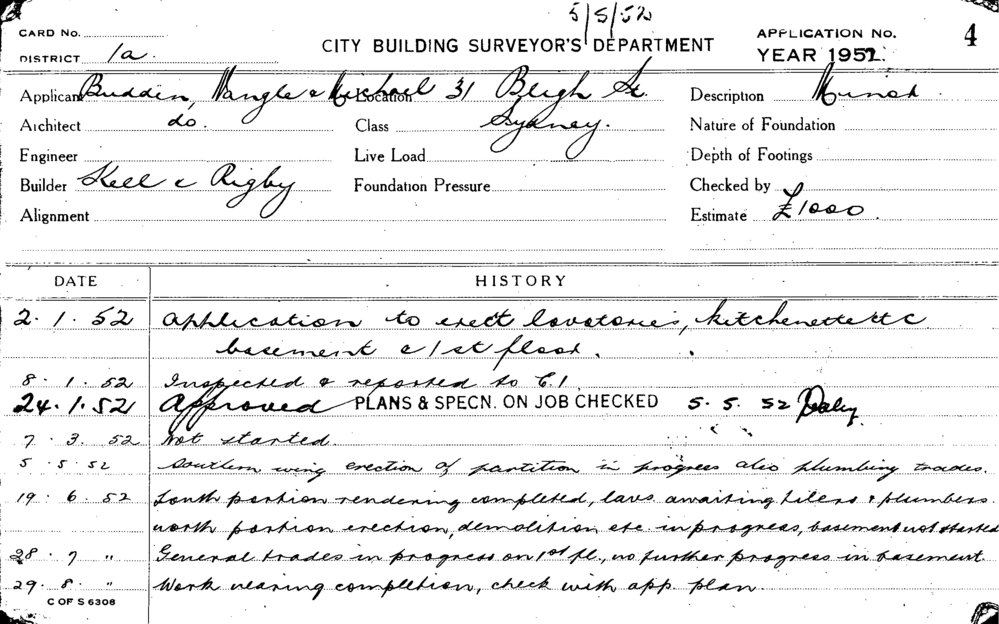 5/5/52
CARD No.
DISTRICT 1a.
CITY BUILDING SURVEYOR'S DEPARTMENT
APPLICATION No. 4
YEAR 1952.
Applicant Budden, Nangle & Michael Location 31 Bligh St. Description Minor
Architect do. Class Sydney. Nature of Foundation
Engineer Live Load Depth of Footings
Builder Kell & Rigby Foundation Pressure Checked by
Alignment Estimate £1000.
DATE HISTORY
2. 1. 52 Application to erect lavatories, kitchenette etc
basement & 1st floor.
8. 1. 52 Inspected & reported to C.I.
24. 1. 52 Approved PLANS & SPECN. ON JOB CHECKED 5. 5. 52 Daley
7. 3. 52 Not started.
5. 5. 52 Southern wing erection of partition in progress also plumbing trades.
19. 6. 52 South portion rendering completed, lavs. awaiting tilers & plumbers.
north portion erection, demolition etc. in progress, basement not started
28. 7 " General trades in progress on 1st fl., no further progress in basement
29. 8. " Work nearing completion, check with app. plan.
C OF S 6308